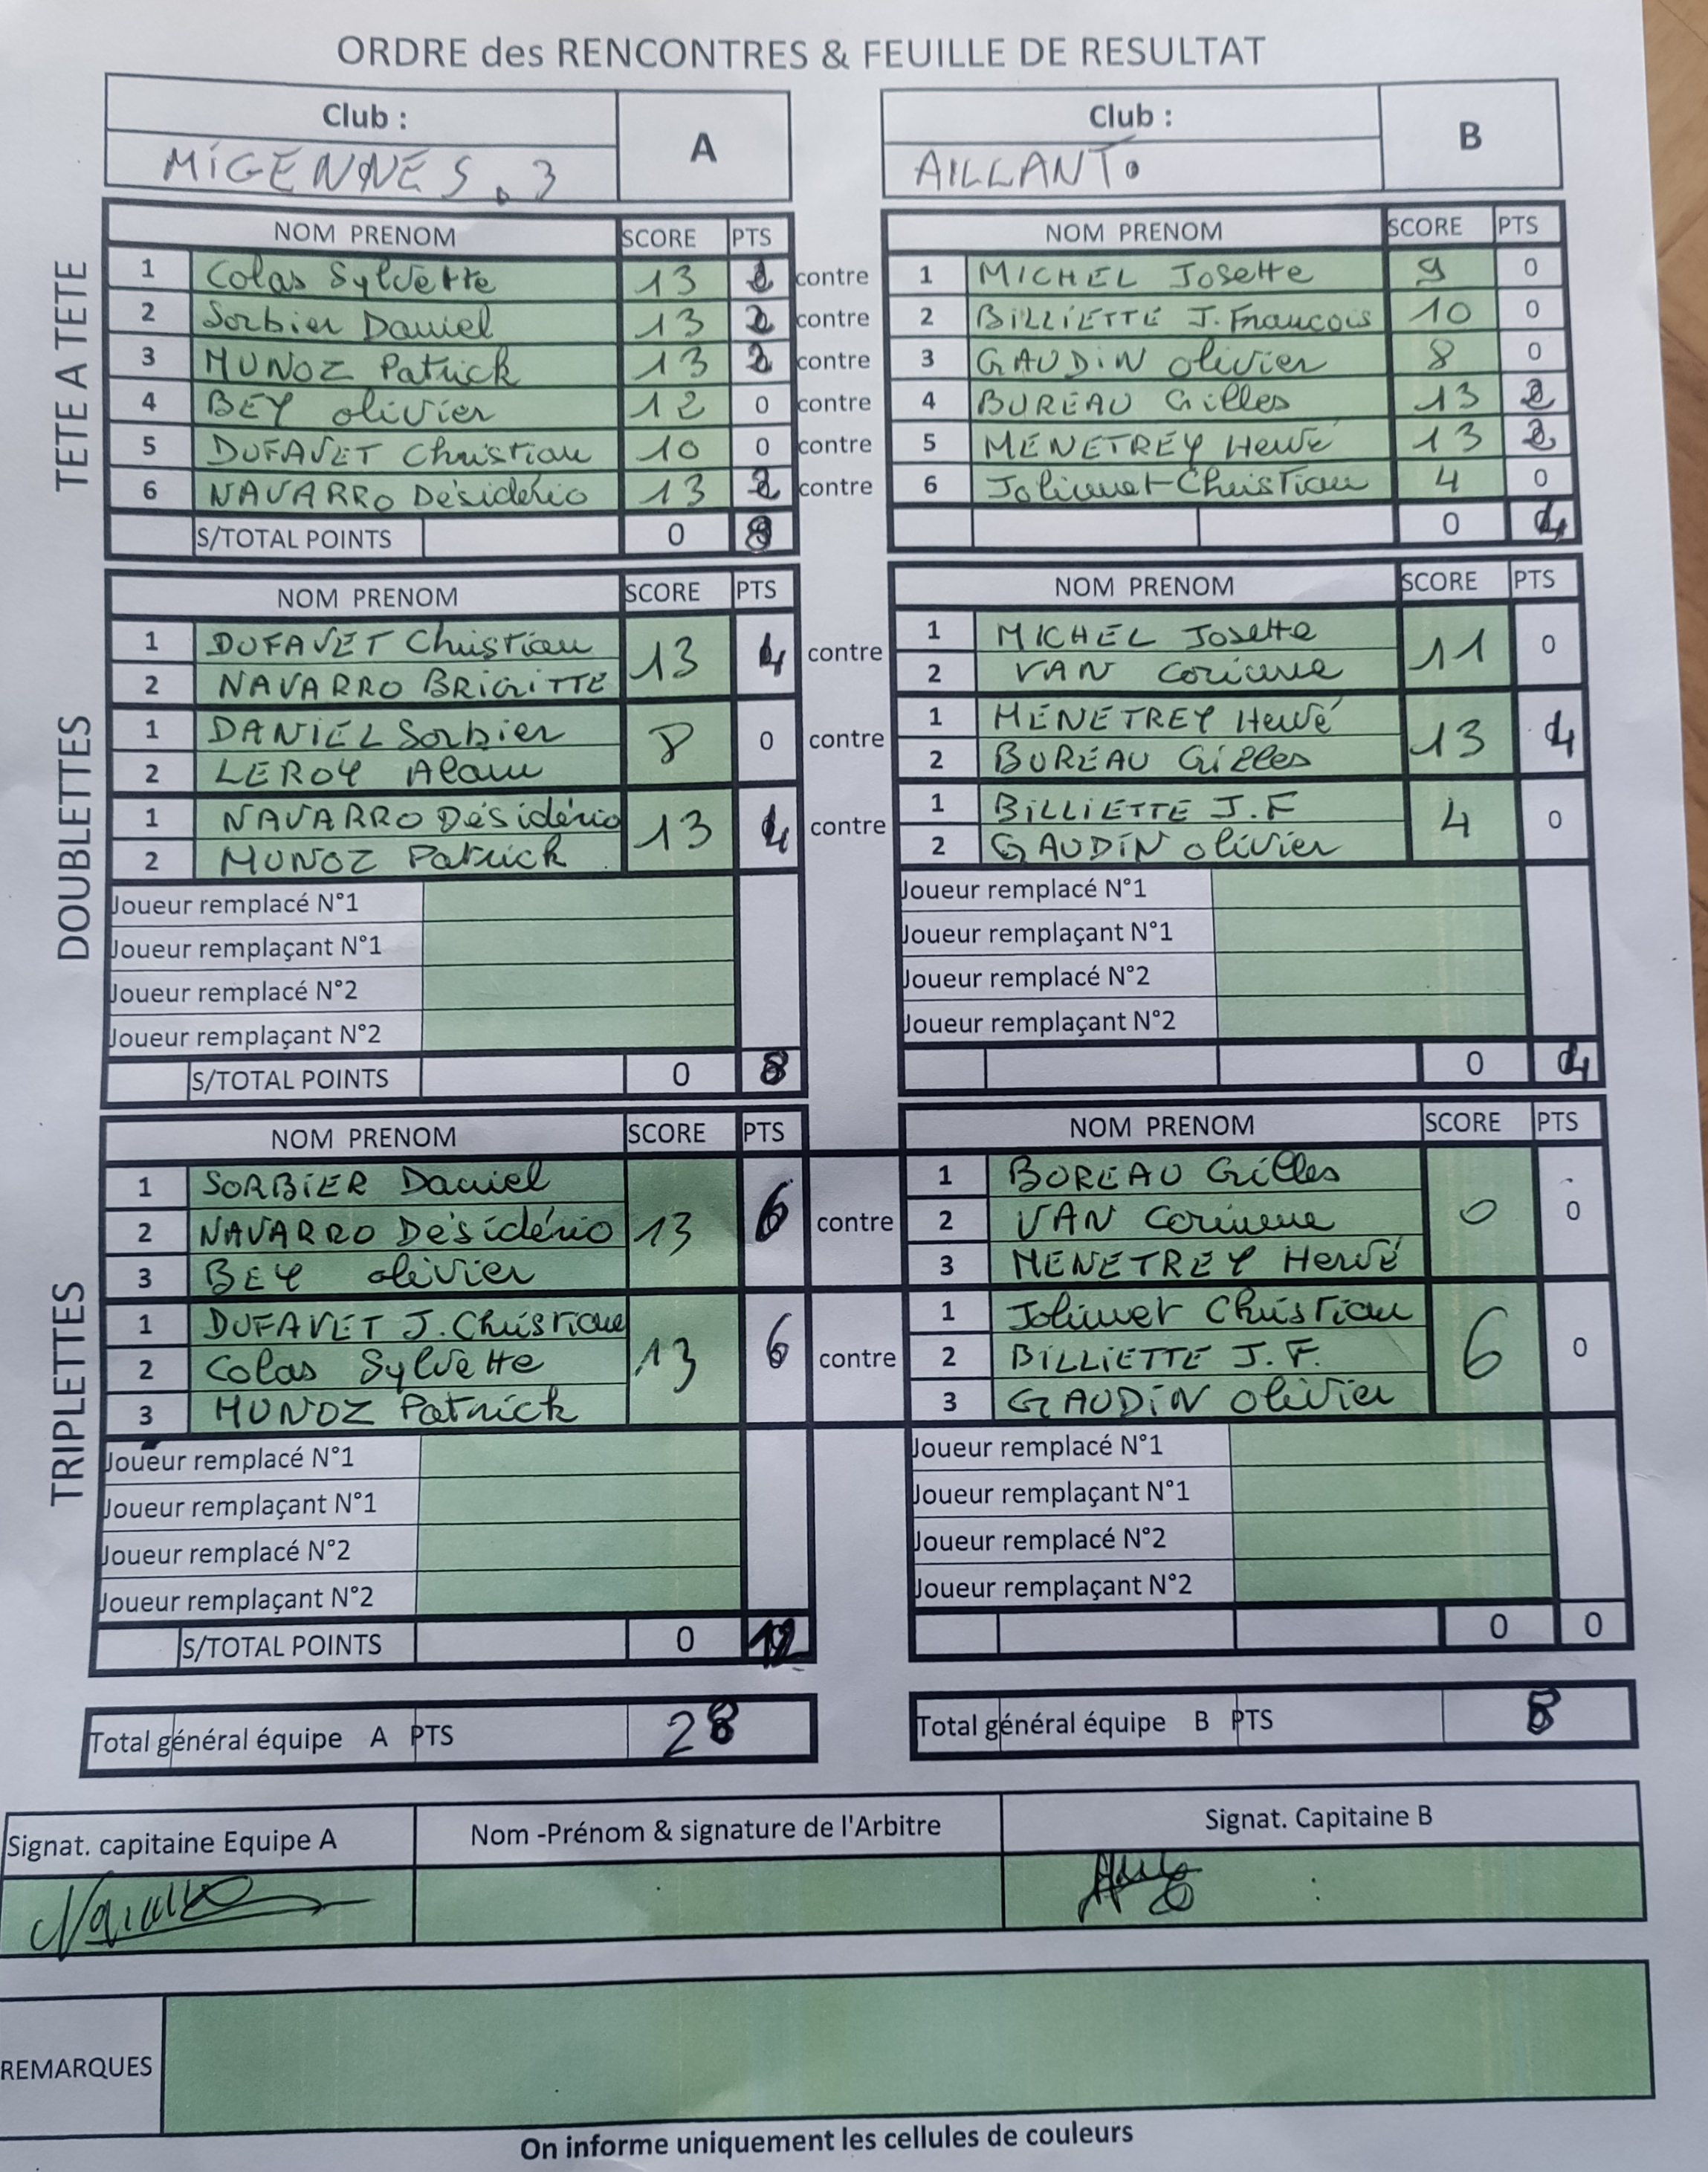 ORDRE des RENCONTRES & FEUILLE DE RESULTAT
Club : A Club : B
MIGENNES.3 AILLANT
NOM PRENOM SCORE PTS NOM PRENOM SCORE PTS
TETE A TETE
1 Colas Sylvette 13 2 contre 1 MICHEL Josette 9 0
2 Sorbier Daniel 13 2 contre 2 BILLIETTE J. Francois 10 0
3 MUNOZ Patrick 13 2 contre 3 GAUDIN olivier 8 0
4 BEY olivier 12 0 contre 4 BUREAU Gilles 13 2
5 DUFAVET Christian 10 0 contre 5 MENETREY Hervé 13 2
6 NAVARRO Désidério 13 2 contre 6 Jolivet Christian 4 0
S/TOTAL POINTS 0 8 0 4
DOUBLETTES
NOM PRENOM SCORE PTS NOM PRENOM SCORE PTS
1 DUFAVET Christian 13 4 contre 1 MICHEL Josette 11 0
2 NAVARRO BRIGITTE 2 VAN Corinne
1 DANIEL Sorbier 8 0 contre 1 MENETREY Hervé 13 4
2 LEROY Alain 2 BUREAU Gilles
1 NAVARRO Désidério 13 4 contre 1 BILLIETTE J.F 4 0
2 MUNOZ Patrick 2 GAUDIN olivier
Joueur remplacé N°1 Joueur remplacé N°1
Joueur remplaçant N°1 Joueur remplaçant N°1
Joueur remplacé N°2 Joueur remplacé N°2
Joueur remplaçant N°2 Joueur remplaçant N°2
S/TOTAL POINTS 0 8 0 4
TRIPLETTES
NOM PRENOM SCORE PTS NOM PRENOM SCORE PTS
1 SORBIER Daniel 13 6 contre 1 BUREAU Gilles 0 0
2 NAVARRO Désidério 2 VAN Corinne
3 BEY olivier 3 MENETREY Hervé
1 DUFAVET J.Christian 13 6 contre 1 Jolivet Christian 6 0
2 Colas Sylvette 2 BILLIETTE J.F.
3 MUNOZ Patrick 3 GAUDIN Olivier
Joueur remplacé N°1 Joueur remplacé N°1
Joueur remplaçant N°1 Joueur remplaçant N°1
Joueur remplacé N°2 Joueur remplacé N°2
Joueur remplaçant N°2 Joueur remplaçant N°2
S/TOTAL POINTS 0 12 0 0
Total général équipe A PTS 28 Total général équipe B PTS 8
Signat. capitaine Equipe A Nom -Prénom & signature de l'Arbitre Signat. Capitaine B
REMARQUES
On informe uniquement les cellules de couleurs